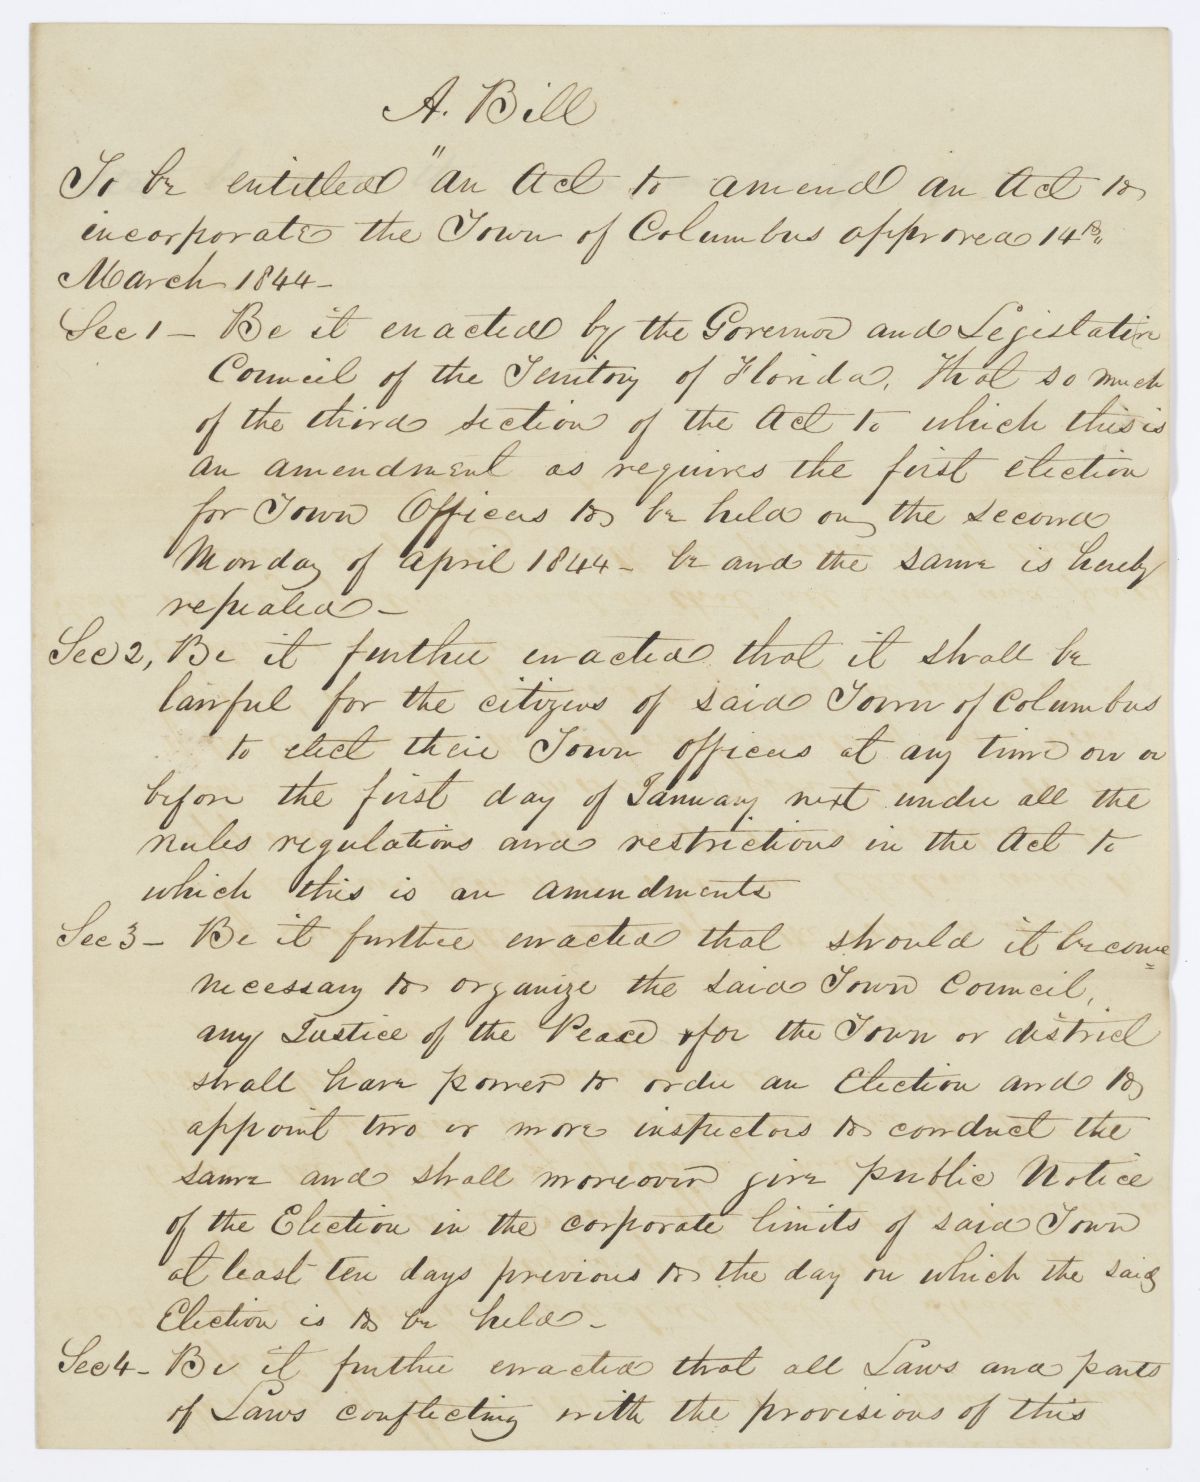 A. Bill
To be entitled "an Act to amend an Act to
incorporate the Town of Columbus approved 14th
March 1844-
Sec 1 - Be it enacted by the Governor and Legislative
Council of the Territory of Florida, That so much
of the third section of the Act to which this is
an amendment as requires the first election
for Town Officers to be held on the second
Monday of April 1844 - be and the same is hereby
repealed -
Sec 2, Be it further enacted that it shall be
lawful for the citizens of said Town of Columbus
to elect their Town officers at any time on or
before the first day of January next under all the
rules regulations and restrictions in the Act to
which this is an amendments
Sec 3 - Be it further enacted that should it become
necessary to organize the said Town Council,
any Justice of the Peace for the Town or district
shall have power to order an Election and to
appoint two or more inspectors to conduct the
same and shall moreover give public Notice
of the Election in the corporate limits of said Town
at least ten days previous to the day on which the said
Election is to be held -
Sec 4 - Be it further enacted that all Laws and parts
of Laws conflicting with the provisions of this